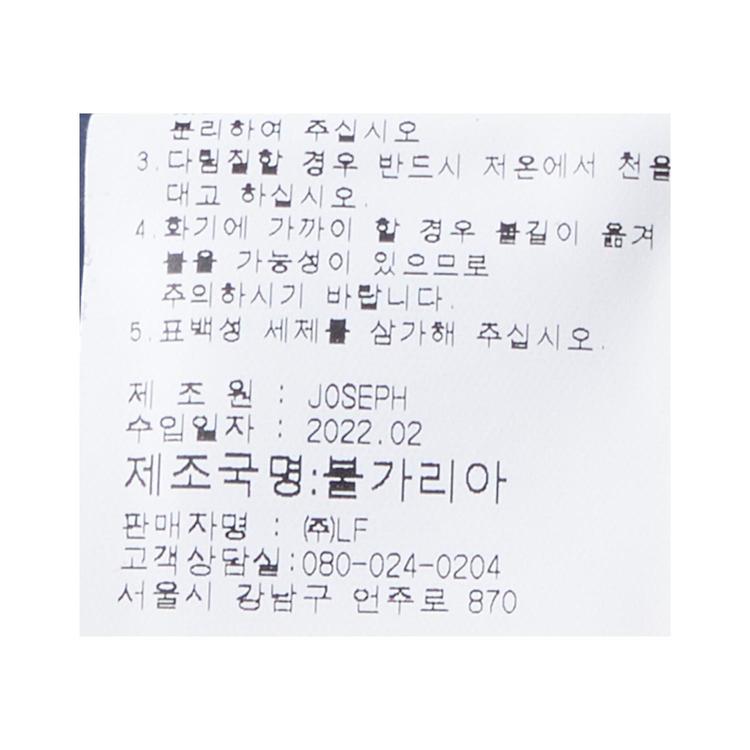 분리하여 주십시오
3. 다림질할 경우 반드시 저온에서 천을
대고 하십시오.
4. 화기에 가까이 할 경우 불길이 옮겨
붙을 가능성이 있으므로
주의하시기 바랍니다.
5. 표백성 세제를 삼가해 주십시오.
제 조 원 : JOSEPH
수입일자 : 2022.02
제조국명:불가리아
판매자명 : ㈜LF
고객상담실:080-024-0204
서울시 강남구 언주로 870